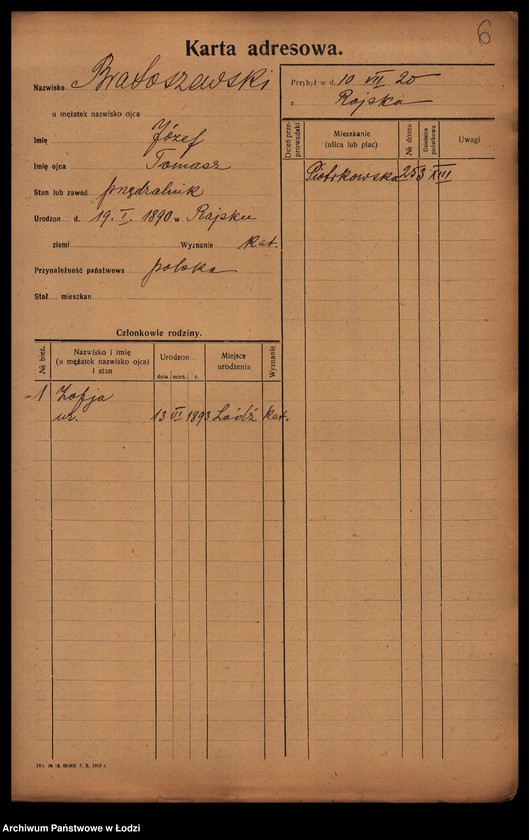 6
Karta adresowa.
Nazwisko Bratoszewski
u mężatek nazwisko ojca
Imię Józef
Imię ojca Tomasz
Stan lub zawód przędzalnik
Urodzon d. 19. I. 1890 w Rajsku
ziemi Wyznanie kat.
Przynależność państwowa polska
Stał. mieszkan
Przybył w d. 10 VII 20
z Rajska
Dzień przeprowadzki Mieszkanie (ulica lub plac) № domu Dzielnica podatkowa Uwagi
Piotrkowska 253 XIII
Członkowie rodziny.
№ bież. Nazwisko i imię (u mężatek nazwisko ojca) i stan Urodzon Miejsce urodzenia Wyznanie
dnia mies. r.
1 Zofja
ur. 13 VI 1893 Łódź kat.
60 000 7. X. 1919 r.
Archiwum Państwowe w Łodzi